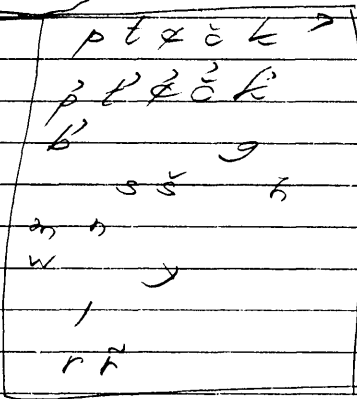 p t ȼ č k ʔ
p̓ t̓ ȼ̓ č̓ k̓
b̓ g
s š ɦ
m n
w y
l
r r̃